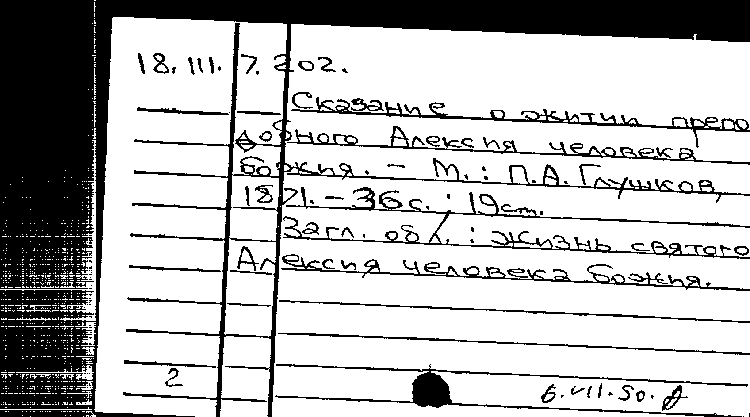 18. III. 7. 202.
Сказание о житии препо
добного Алексия человека
божия. – М.: П.А. Глушков,
1871. – 36 с.; 19 см.
Загл. обл.: Жизнь святого
Алексия человека божия.
2
6.VII.50.